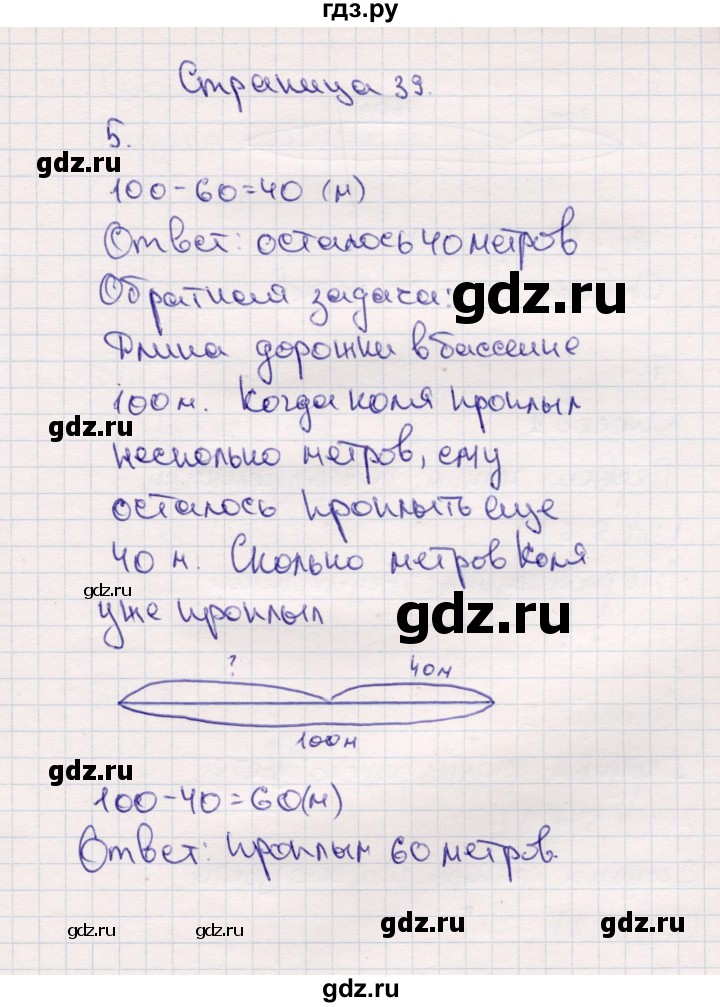 гдз.ру
Страница 39.
5.
gdz.ru
100-60=40 (м)
Ответ: осталось 40 метров
Обратная задача:
gdz.ru
Длина дорожки в бассейне
100 м. Когда Коля проплыл
gdz.ru
несколько метров, ему
осталось проплыть еще
40 м. Сколько метров Коля
gdz.ru
уже проплыл
gdz.ru
? 40м
100м
gdz.ru
100-40=60(м)
Ответ: проплыл 60 метров.
gdz.ru gdz.ru gdz.ru gdz.ru
gdz.ru